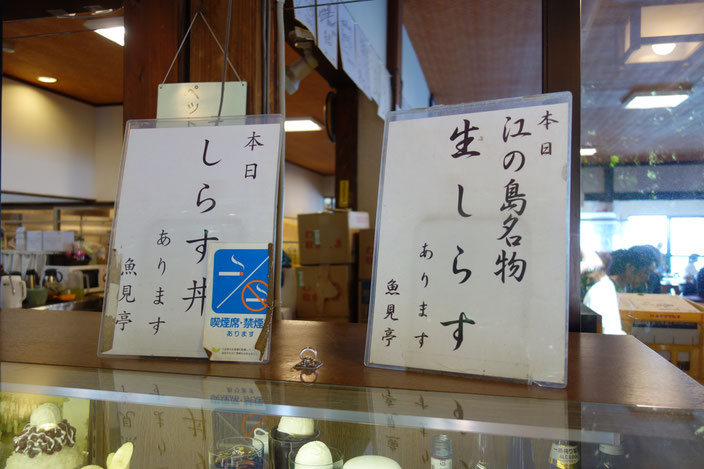 ペット
本日
しらす丼
あります
魚見亭
喫煙席・禁煙
あります
本日
江の島名物
生しらす
あります
魚見亭